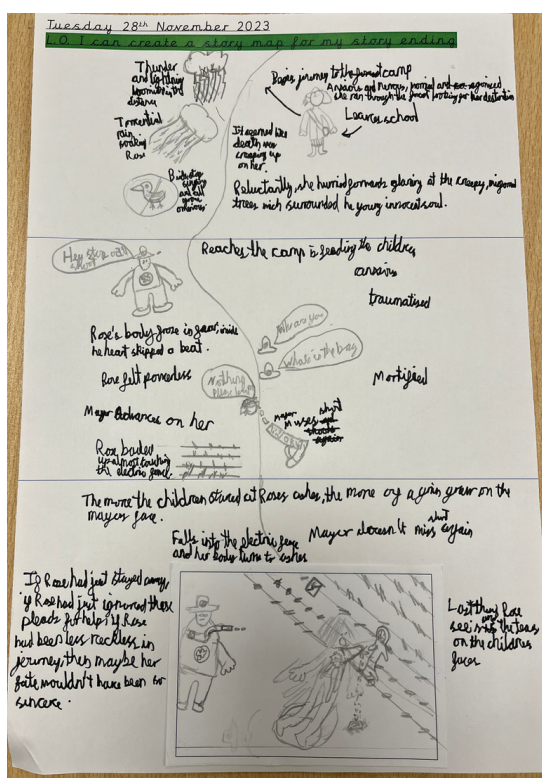 Tuesday 28th November 2023
L.O. I can create a story map for my story ending
Thunder
and lightning
in the
distance
Begins journey to the camp
Anxious and nervous, worried and
she ran through the forest looking for her destination
Leaves school
Torrential
rain
soaking
Rose
It seemed like
death was
creeping up
on her.
Birds stop
singing
and all
gone
ominous
Reluctantly, she hurried forwards glaring at the creepy, misformed
trees wich surrounded he young innocent soul.
Hey stop
Reaches the camp is feeding the children
anxious
traumatised
Rose's body froze in fear, inside
he heart skipped a beat.
who are you
Whats in the bag
Rose felt powerless
Nothing
Please
Mortified
Mayor Advances on her
mayor
Misses
shot
Rose backed
up almost touching
the electric fence.
The more the children stared at Roses ashes, the more of a grin grew on the
mayors face.
Falls into the electric fence
and her body turns to ashes
Mayor doesn't miss shot again
If Rose had just stayed away,
if Rose had just ignored these
pleads for help, if Rose
had been less reckless in
jerurney, then maybe her
fate wouldn't have been so
sincere.
Last thing Rose
sees is the tears
on the childrens
faces